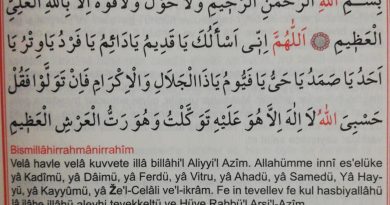 بِسْمِ اللّٰهِ الرَّحْمٰنِ الرَّحِيمِ وَلَا حَوْلَ وَلَا قُوَّةَ اِلَّا بِاللّٰهِ الْعَلِيِّ
الْعَظِيمِ اَللّٰهُمَّ اِنّٖى اَسْأَلُكَ يَا قَدِيمُ يَادَائِمُ يَا فَرْدُ يَاوِتْرُ يَا
اَحَدُ يَا صَمَدُ يَاحَىُّ يَا قَيُّومُ يَاذَاالْجَلَالِ وَالْاِكْرَامِ فَاِنْ تَوَلَّوْا فَقُلْ
حَسْبِىَ اللّٰهُ لَا اِلٰهَ اِلَّا هُوَ عَلَيْهِ تَوَكَّلْتُ وَهُوَ رَبُّ الْعَرْشِ الْعَظِيمِ
Bismillâhirrahmânirrahîm
Velâ havle velâ kuvvete illâ billâhi'l Aliyyi'l Azîm. Allahümme innî es'elüke
yâ Kadîmü, yâ Dâimü, yâ Ferdü, yâ Vitru, yâ Ahadü, yâ Samedü, Yâ Hay-
yü, yâ Kayyûmü, yâ Ze'l-Celâli ve'l-ikrâm. Fe in tevellev fe kul hasbiyallâhü
lâ ilâhe illâhü aleyhi tevekkeltü ve Hüve Rabbü'l Arşi'l-Azîm.